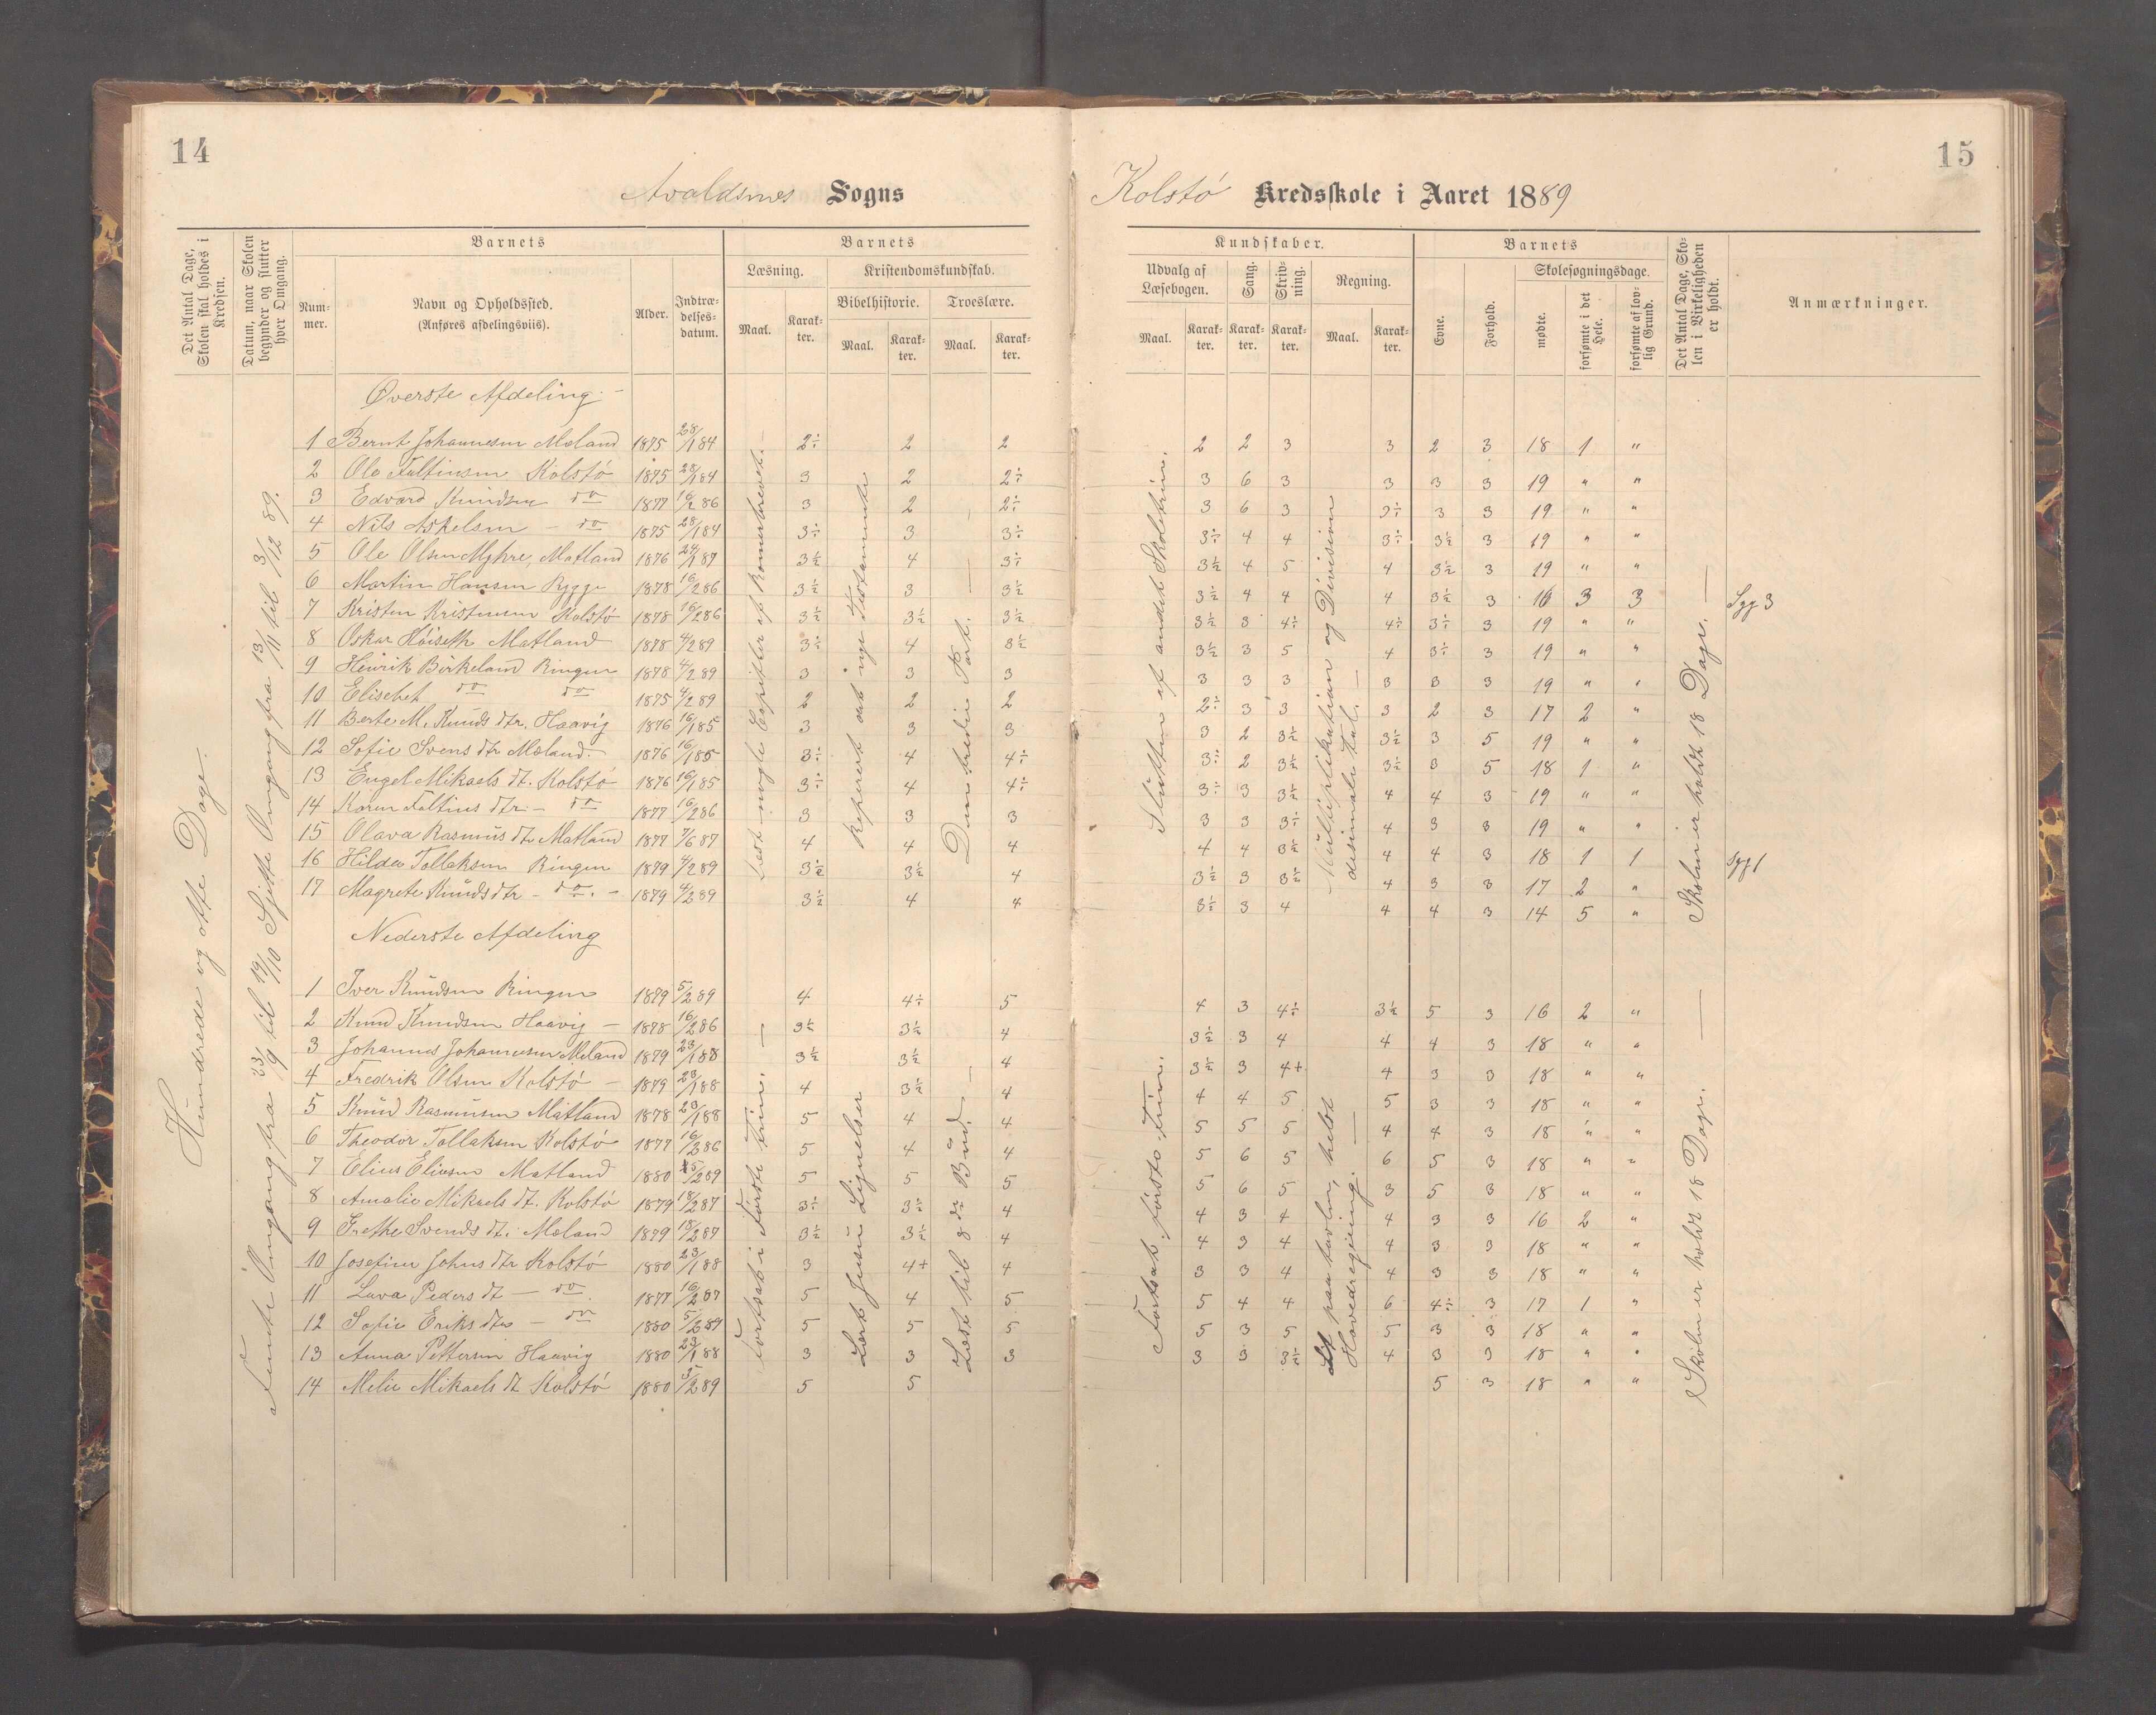 14
Avaldsnes Sogns
Det Antal Dage, Skolen skal holdes i Kredsen.
Datum, naar Skolen begynder og slutter hver Omgang.
Barnets
Nummer.
Navn og Opholdssted.
(Anføres afdelingsviis).
Alder.
Indtrædelsesdatum.
Barnets
Læsning.
Maal.
Karakter.
Kristendomskundskab.
Bibelhistorie.
Maal.
Karakter.
Troeslære.
Maal.
Karakter.
Hundrede og otte Dage.
Femte Omgang fra 23/9 til 19/10 Sjette Omgang fra 13/11 til 3/12 89.
Øverste Afdeling
1 Bernt Johannesen Mæland 1875 28/1 84 2÷ 2 2
2 Ole Faltinsen Kolstø 1875 28/1 84 3 2 2÷
3 Edvard Knudsen do 1877 16/2 86 3 2 2÷
4 Nils Aspelsen - do 1875 28/1 84 3÷ 3 3÷
5 Ole Olsen Myhre, Matland 1876 24/1 87 3½ 4 3÷
6 Martin Hansen Rygge 1878 16/2 86 3½ 3 3½
7 Kristen Kristensen Kolstø 1878 16/2 86 3½ 3½ 3½
8 Oskar Høiseth Matland 1878 4/2 89 3÷ 4 3½
9 Henrik Birkeland Ringen 1878 4/2 89 3 3 3
10 Elisebet do do 1875 4/2 89 2 2 2
11 Berte M. Knuds dtr. Haavig 1876 16/1 85 3 3 3
12 Sofie Svens dtr Mæland 1876 16/1 85 3÷ 4 4÷
13 Engel Mikaels dt. Kolstø 1876 16/1 85 3÷ 4 4÷
14 Karen Faltins dtr - do 1877 16/2 86 3 3 3
15 Olava Rasmus dtr Matland 1877 7/6 87 4 4 4
16 Hilda Tollaksen Ringen 1879 4/2 89 3½ 3½ 4
17 Magrete Knuds dtr - do. - 1879 4/2 89 3½ 4 4
Læst nogle Capitler af Romerbrevet.
Repeteret det nye Testamente
Den tredie Part.
Nederste Afdeling
1 Iver Knudsen Ringen 1879 5/2 89 4 4÷ 5
2 Knud Knudsen Haavig - 1878 16/2 86 3½ 3½ 4
3 Johannes Johannesen Mæland 1879 23/1 88 3½ 3½ 4
4 Fredrik Olsen Kolstø - 1879 23/1 88 4 3½ 4
5 Knud Rasmusen Matland 1878 23/1 88 5 4 4
6 Theodor Tollaksen Kolstø 1877 16/2 86 5 4 4
7 Elius Eliesen Matland 1880 5/2 89 5 5 5
8 Amalie Mikaels dt. Kolstø 1879 18/2 87 3÷ 3½ 4
9 Grethe Svends dt. Mæland 1879 18/2 87 3½ 3½ 4
10 Josefine Johns dtr Kolstø 1880 23/1 88 3 4+ 4
11 Lava Peders dt - do. 1877 16/2 87 5 4 5
12 Sofie Eriks dtr - do 1880 5/2 89 5 5 5
13 Anna Pettersen Haavig 1880 23/1 88 3 3 3
14 Melie Mikaels dt Kolstø 1880 5/2 89 5 5
Fortsat i første Trin.
Lært Jesu Lignelser
Læst til 8de Bud.
15
Kolstø Kredsskole i Aaret 1889
Kundskaber.
Udvalg af Læsebogen.
Maal.
Karakter.
Sang.
Karakter.
Skrivning.
Karakter.
Regning.
Maal.
Karakter.
Barnets
Evne.
Forhold.
Skolesøgningsdage.
mødte.
forsømte i det Hele.
forsømte af lovlig Grund.
Det Antal Dage, Skolen i Virkeligheden er holdt.
Anmærkninger.
2 2 3 3 2 3 18 1 "
3 6 3 3 3 3 19 " "
3 6 3 3÷ 3 3 19 " "
3÷ 4 4 3÷ 3½ 3 19 " "
3½ 4 5 4 3½ 3 19 " "
3½ 4 4 4 3½ 3 16 3 3 Syg 3
3½ 3 4÷ 4÷ 3÷ 3 19 " "
3½ 3 5 4 3÷ 3 19 " "
3 3 3 3 3 3 19 " "
2÷ 3 3 3 2 3 17 2 "
3 2 3½ 3½ 3 5 19 " "
3÷ 2 3½ 3½ 3 5 18 1 "
3÷ 3 3½ 4 4 3 19 " "
3 3 3÷ 4 3 3 19 " "
4 4 3½ 4 4 3 18 1 1 Syg 1
3½ 3 3½ 4 3 3 17 2 "
3½ 3 4 4 4 3 14 5 "
Slutten af andet Skoletrin.
Multiplikation og Division desimale tal.
Skolen er holdt 18 Dage.
4 3 4÷ 3½ 5 3 16 2 "
3½ 3 4 4 4 3 18 " "
3½ 3 4+ 4 3 3 18 " "
4 4 5 5 3 3 18 " "
5 5 5 4 4 3 18 " "
5 6 5 6 5 3 18 " "
5 6 5 3 5 3 18 " "
4 3 4 4 3 3 16 2 "
4 3 4 4 3 3 18 " "
3 3 4 4 3 3 18 " "
5 4 4 6 4÷ 3 17 1 "
5 3 5 5 3 3 18 " "
3 3 3½ 4 3 3 18 " "
5 3 18 " "
Fortsat første Trin.
paa tavlen, helst Hovedregning.
Skolen er holdt 18 Dage.